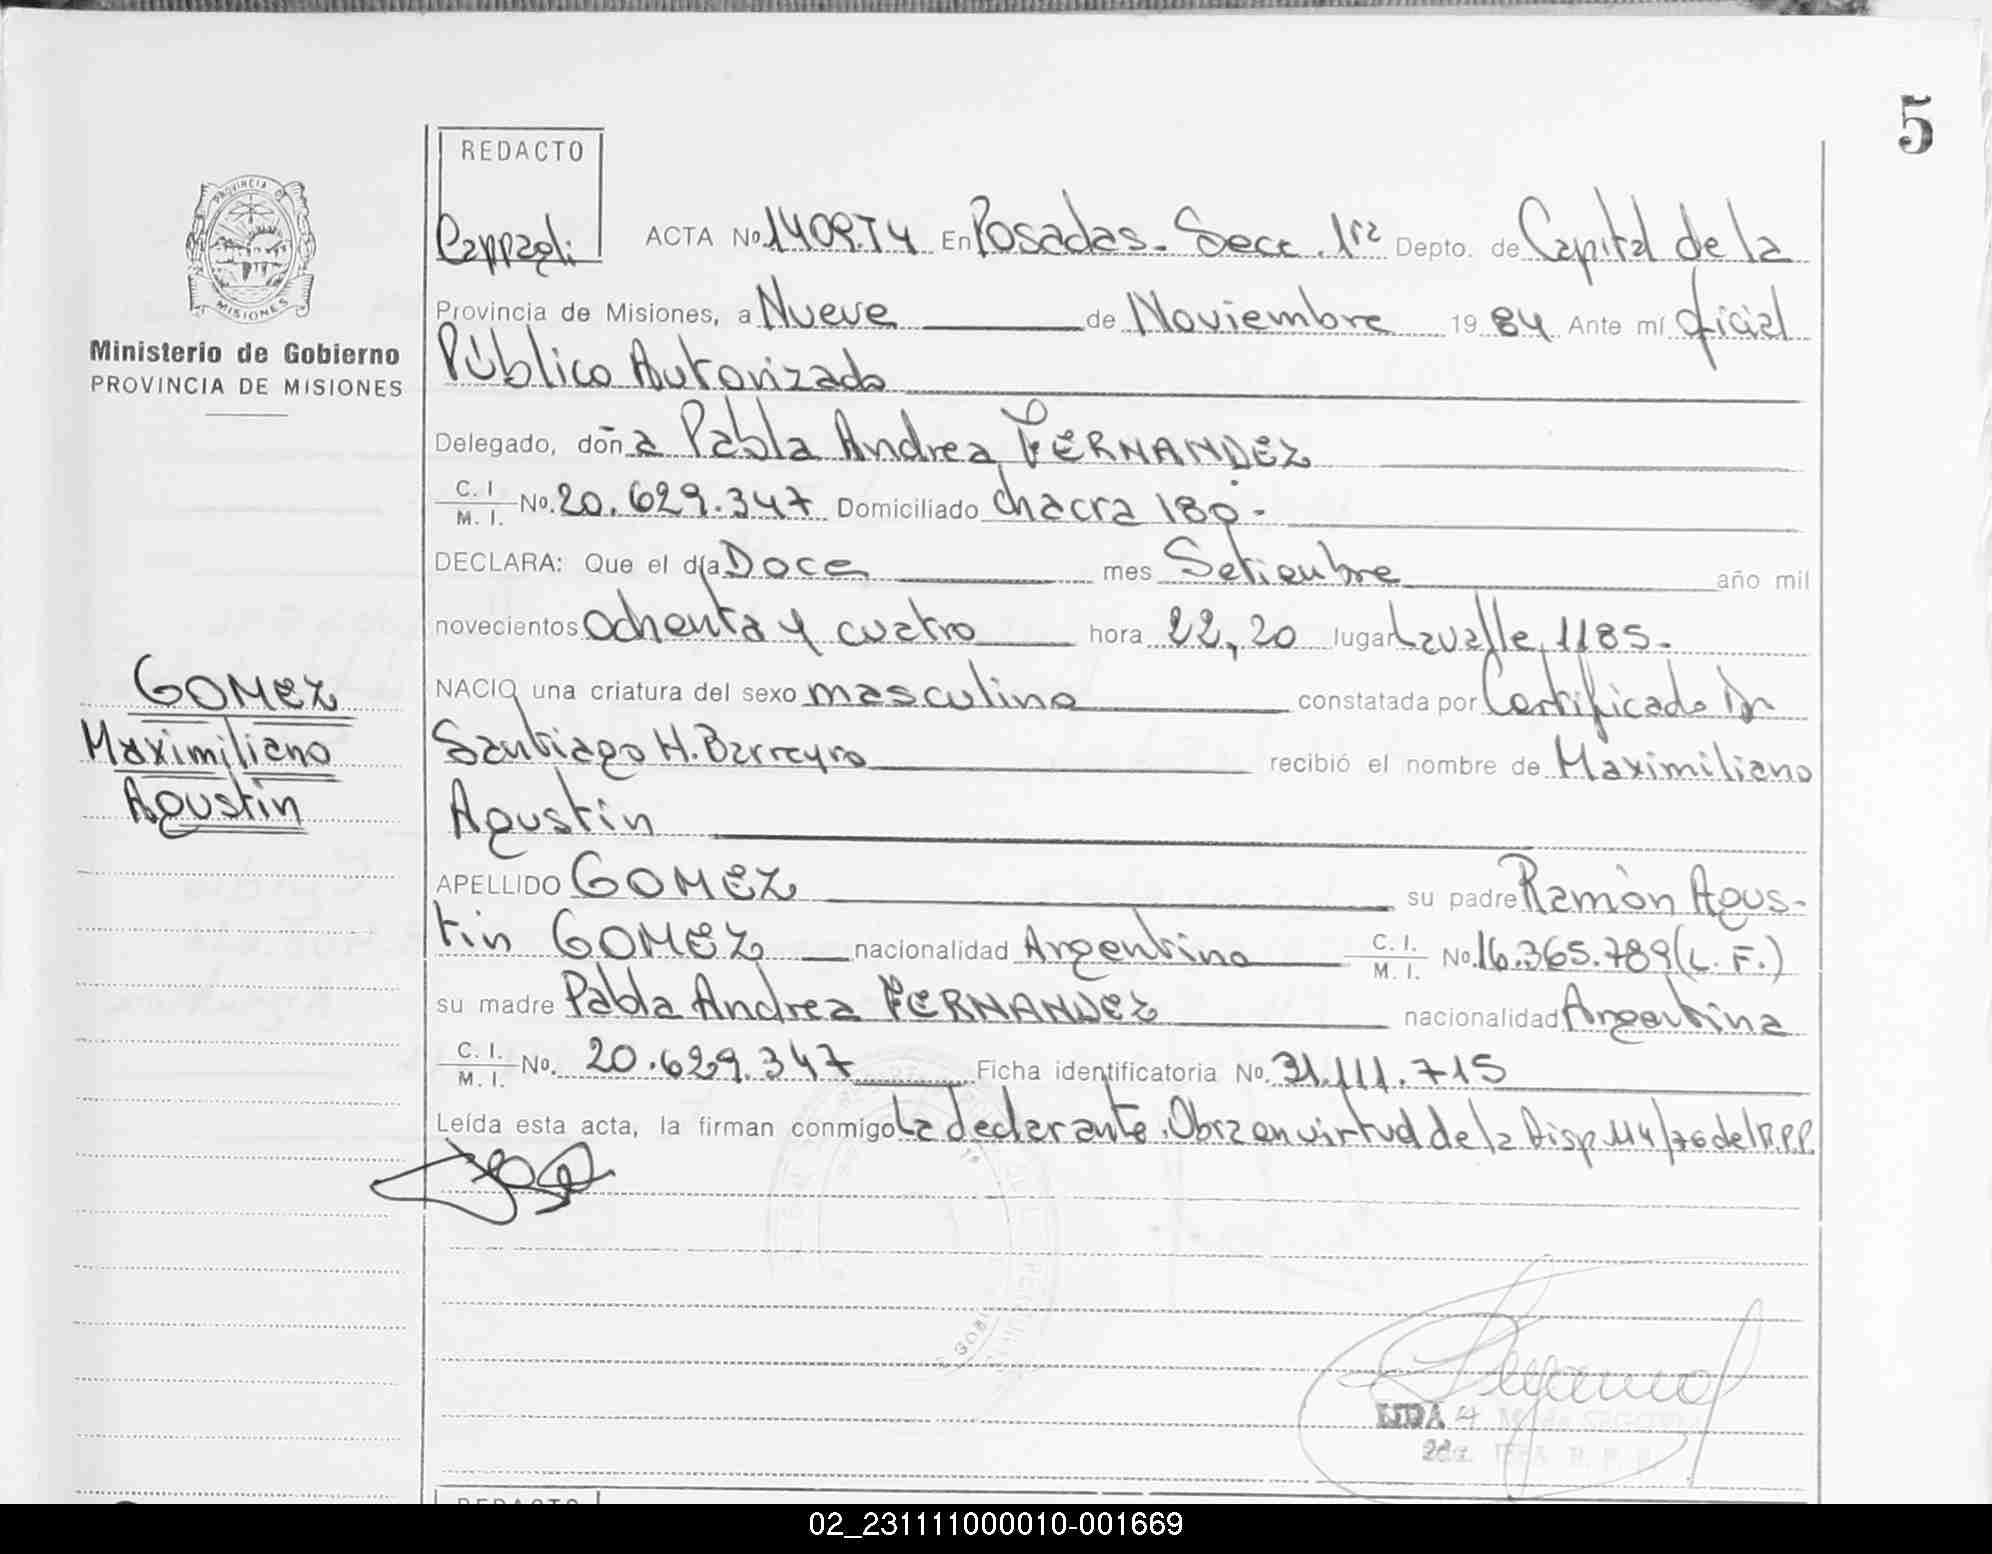 5
REDACTO
Cappagli
ACTA No. 1409.T4 En Posadas - Secc. 1ra Depto. de Capital de la
Provincia de Misiones, a Nueve de Noviembre 19 84 Ante mí oficial
Público Autorizado
Delegado, doña Pabla Andrea FERNANDEZ
C. I / M. I. No. 20.629.347 Domiciliado chacra 180 -
DECLARA: Que el día Doce mes Setiembre año mil
novecientos ochenta y cuatro hora 22,20 lugar Lavalle, 1185.-
NACIO una criatura del sexo masculino constatada por Certificado Dr
Santiago H. Barreyro recibió el nombre de Maximiliano
Agustin
APELLIDO GOMEZ su padre Ramón Agus-
tin GOMEZ nacionalidad Argentina C. I. / M. I. No. 16.365.789 (L. F.)
su madre Pabla Andrea FERNANDEZ nacionalidad Argentina
C. I. / M. I. No. 20.629.347 Ficha identificatoria No. 31.111.715
Leída esta acta, la firman conmigo La declarante. Obra en virtud de la Disp. 114/76 del R.P.P.
PROVINCIA DE
MISIONES
Ministerio de Gobierno
PROVINCIA DE MISIONES
GOMEZ
Maximiliano
Agustin
LIDA
REDACTO
02_231111000010-001669